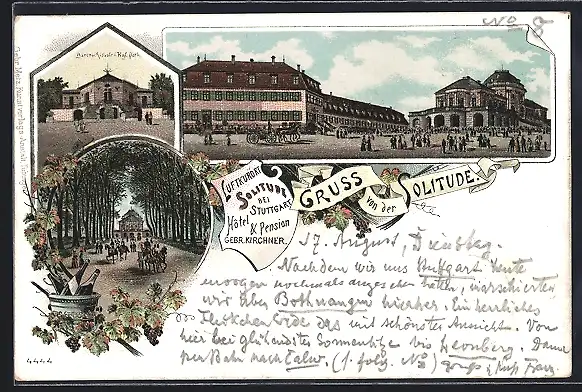 No 8
Bärenschlössle i. Kgl. Park.
Gebr. Metz, Kunstverlags-Anstalt, Tübingen
LUFTKURORT
SOLITUDE
BEI
STUTTGART
Hôtel
& Pension
GEBR. KIRCHNER.
GRUSS
von der
SOLITUDE.
17. August, Dienstag.
Nachdem wir uns Stuttgart heute
morgen nochmals angesehen hatten, marschierten
wir über Bothnang hierher. Ein herrliches
Fleckchen Erde das mit schönster Aussicht. Von
hier bei glühendster Sonnenhitze bis Leonberg. Dann
per Bahn nach Calw. (1 folg. No)